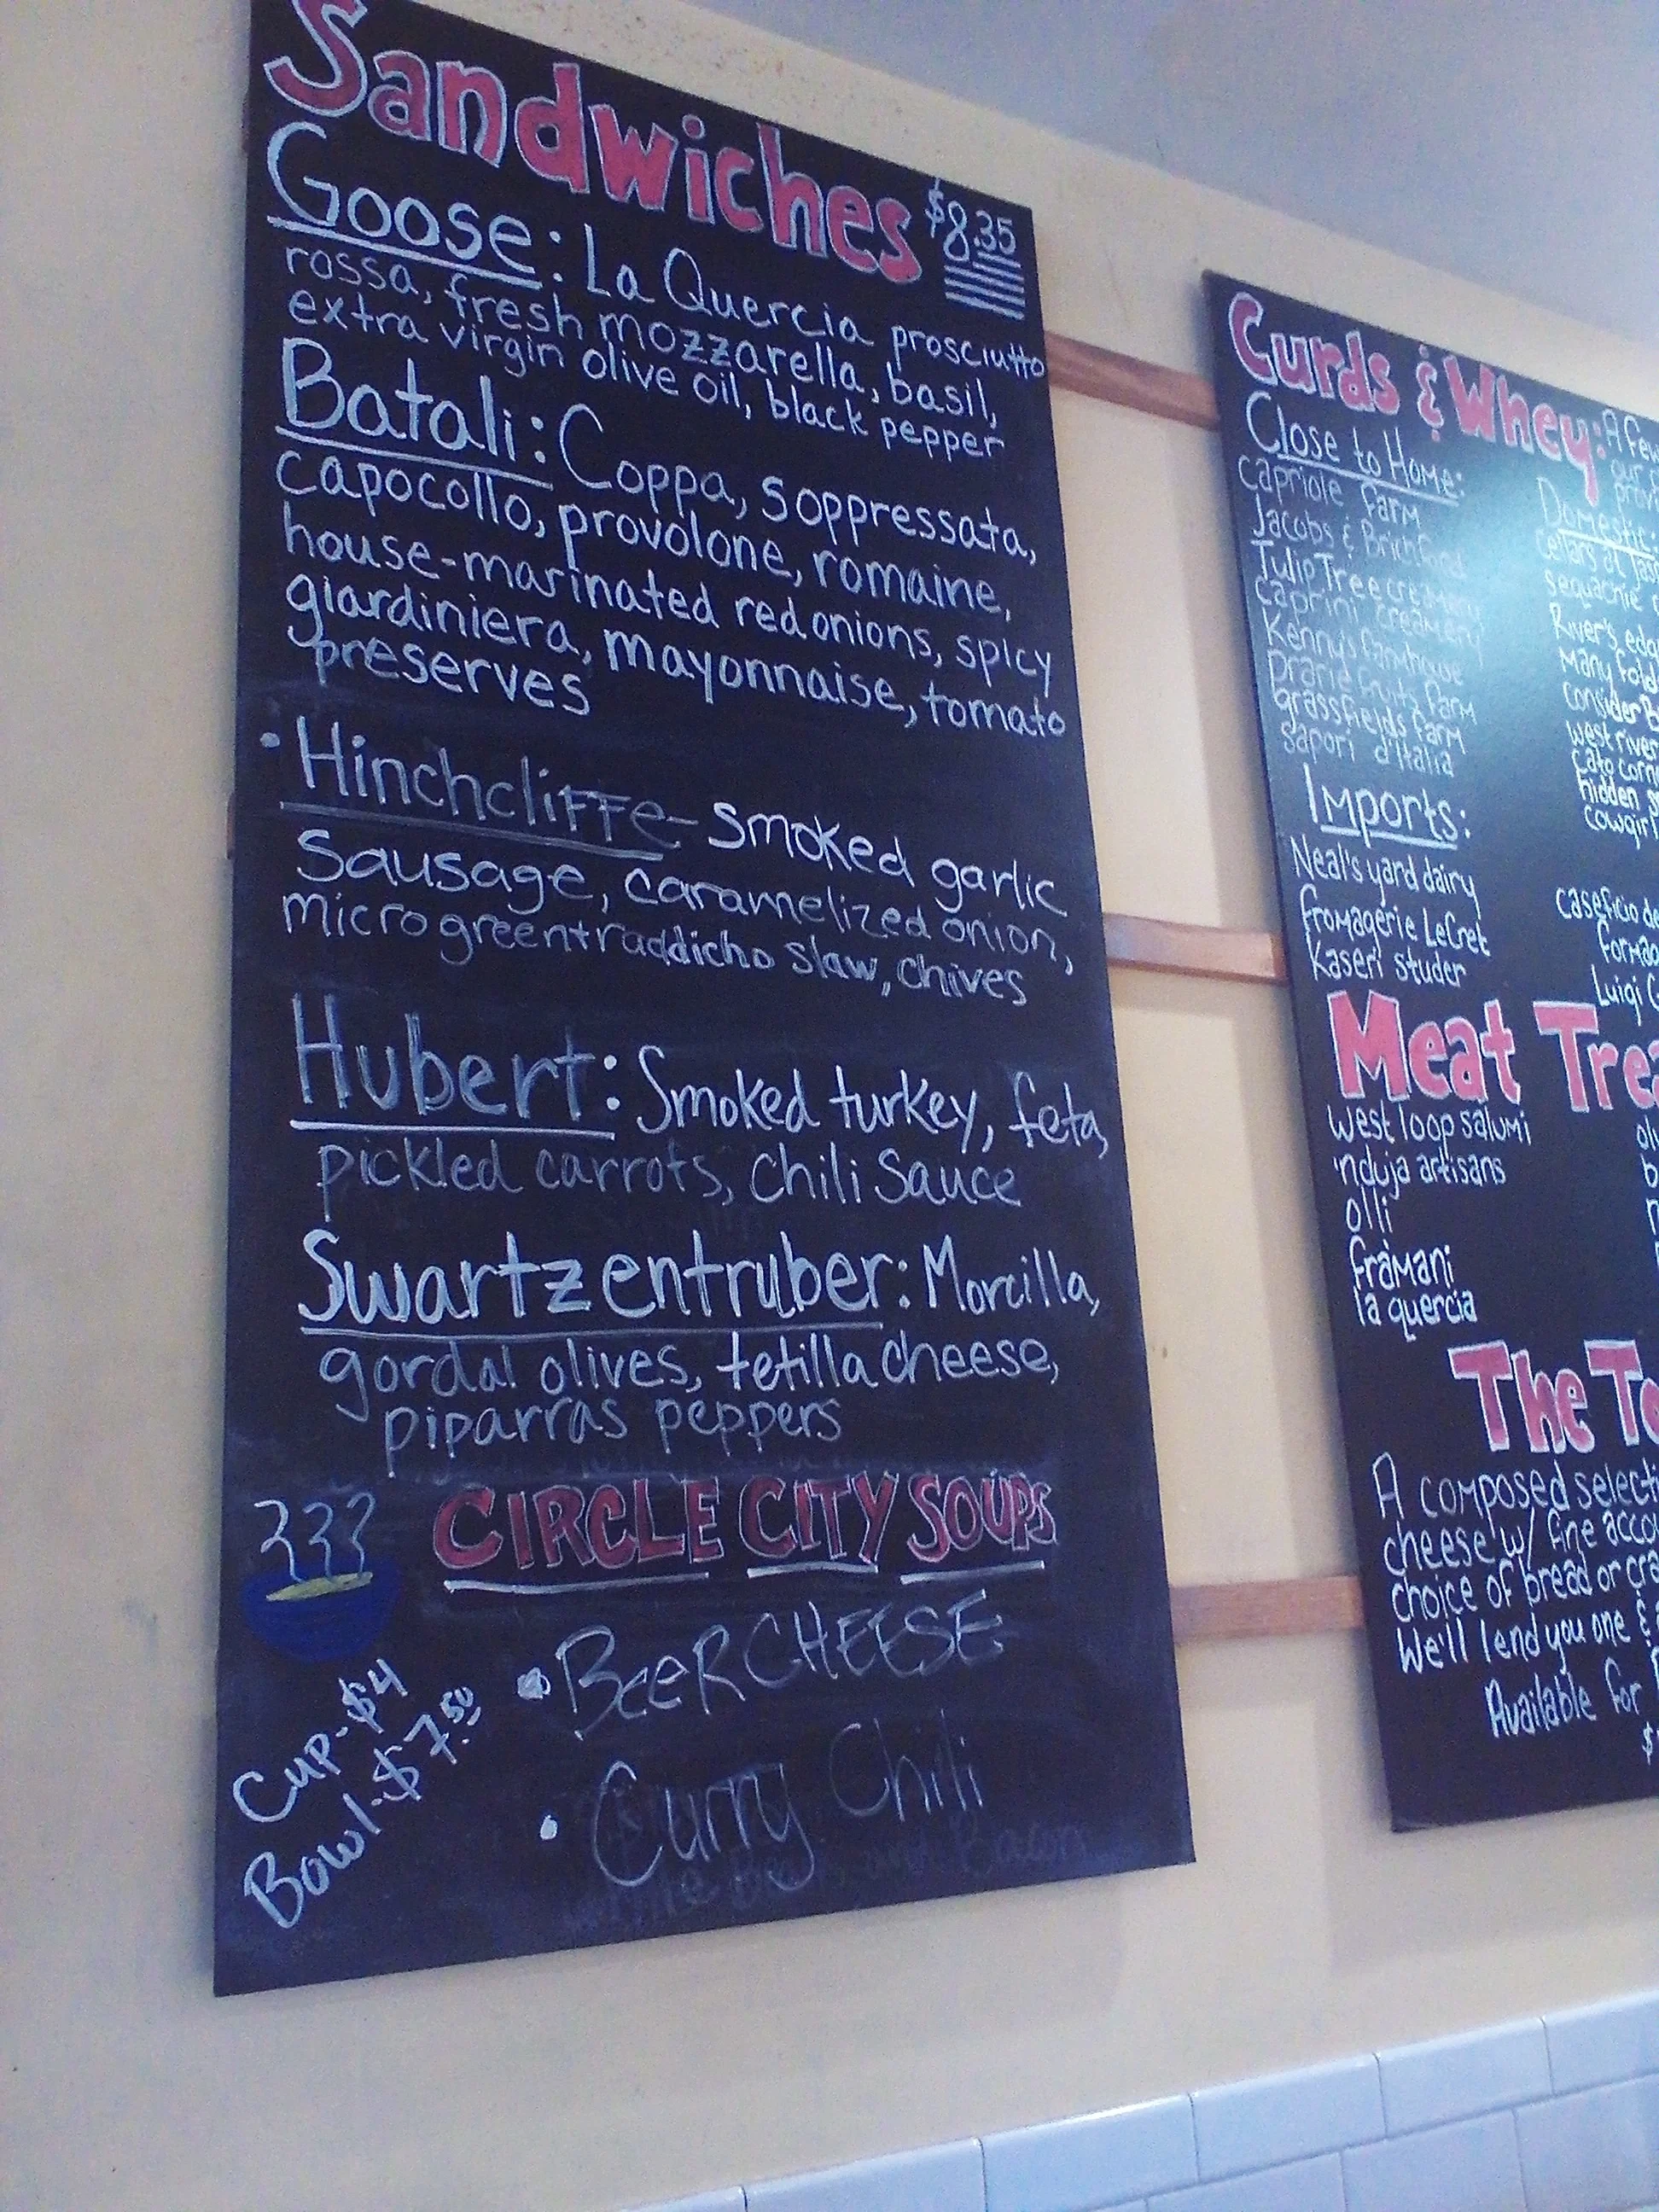 Sandwiches $8.35
Goose: La Quercia prosciutto
rossa, fresh mozzarella, basil,
extra virgin olive oil, black pepper
Batali: Coppa, Soppressata,
capocollo, provolone, romaine,
house-marinated red onions, spicy
giardiniera, mayonnaise, tomato
preserves
• Hinchcliffe - Smoked garlic
Sausage, caramelized onion,
microgreen + raddicho slaw, chives
Hubert: Smoked turkey, feta,
pickled carrots, chili Sauce
Swartzentruber: Morcilla,
gordal olives, tetilla cheese,
piparras peppers
CIRCLE CITY SOUPS
Cup-$4
Bowl-$7.50
• BEER CHEESE
• Curry Chili
Curds & Whey: A few
our
Close to Home:
capriole farm
Jacobs & Brichford
Tulip Tree creamery
caprini creamery
Kenny's farmhouse
prarie fruits farm
grassfields farm
sapori d'italia
Domestic:
cellars at jas
sequachie
River's edg
Many fold
consider B
west river
cato corn
hidden s
cowgirl
Imports:
Neal's yard dairy
fromagerie LeCret
kaseri studer
caseficio de
formag
Luigi G
Meat Trea
west loop salumi
'nduja artisans
olli
framani
la quercia
The To
A composed selecti
cheese w/ fine acco
choice of bread or cra
We'll lend you one &
Available for
$